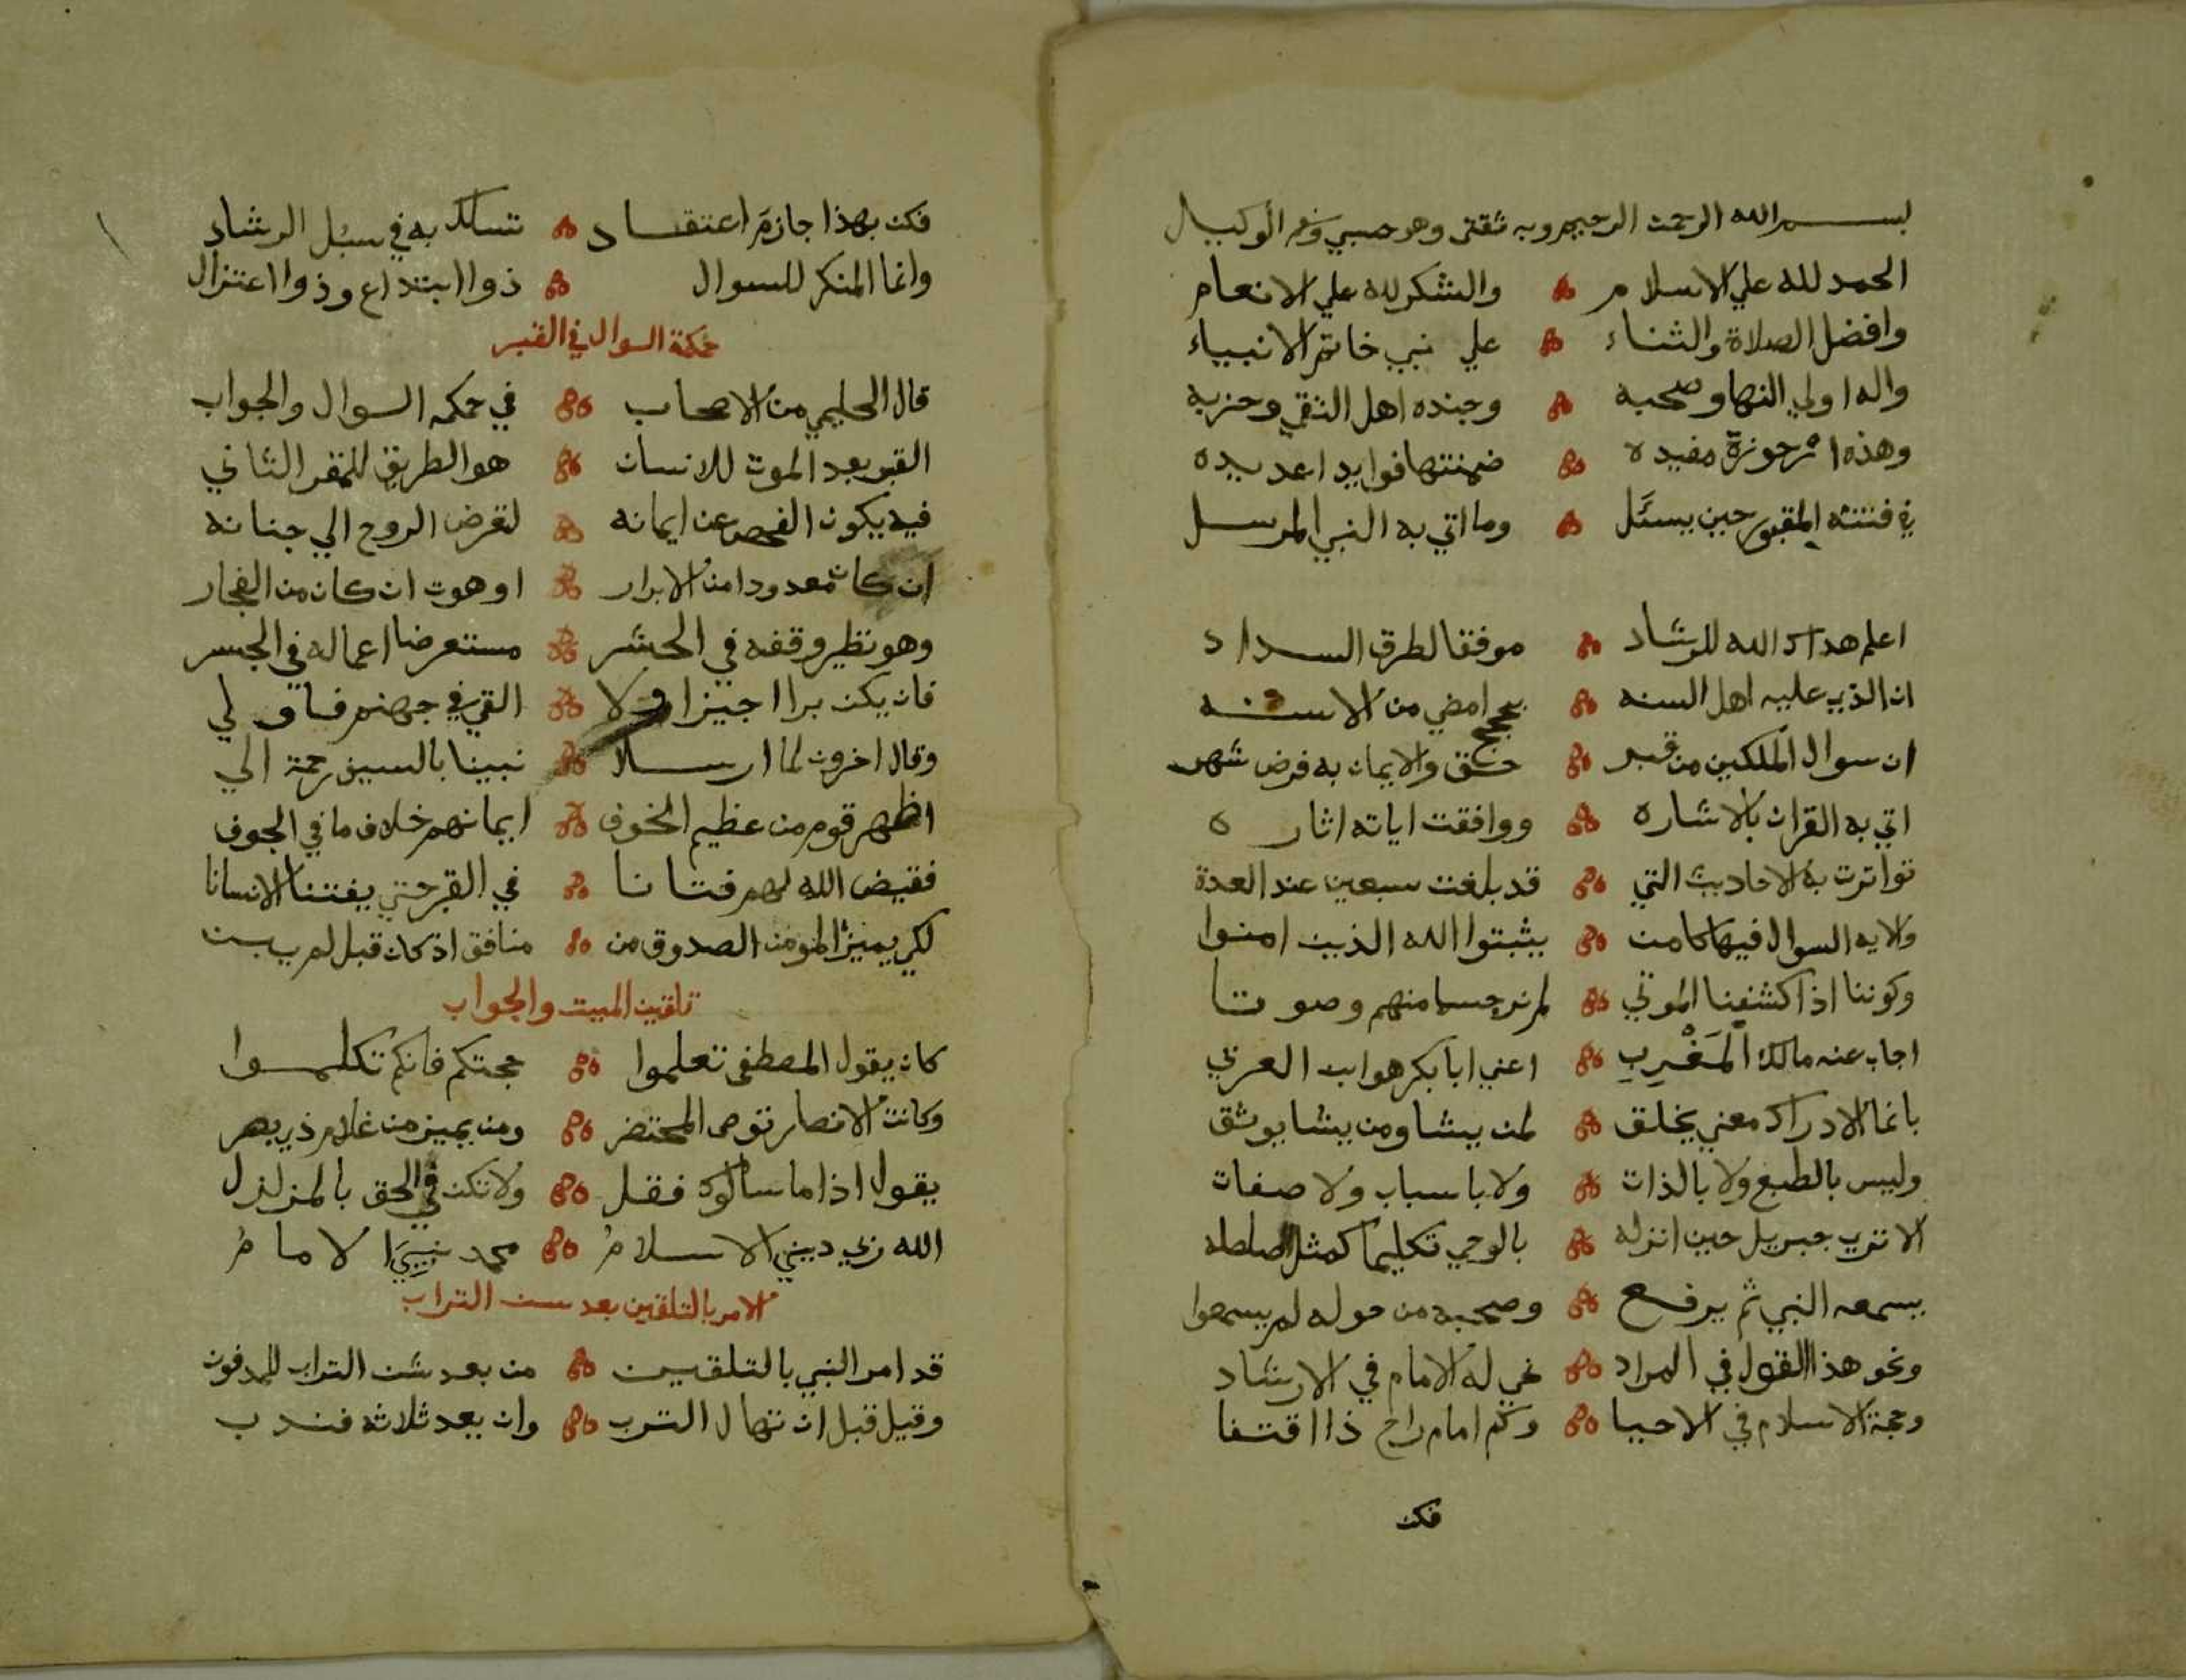 بسم الله الرحمن الرحيم وبه ثقتي وهو حسبي ونعم الوكيل
الحمد لله علي الاسلام والشكر لله علي الانعام
وافضل الصلاة والثناء علي نبي خاتم الانبياء
واله اولي النها وصحبه وجنده اهل التقي وحزبه
وهذه ارجوزة مفيده ضمنتها فوايدا عديده
في فتنته المقبور حين يسئل وما اتي به النبي المرسل
اعلم هداك الله للرشاد موفقا لطرق السداد
ان الذي عليه اهل السنه بحجج امضي من الاسنه
ان سوال الملكين من قبر حق والايمان به فرض شهر
اتي به القران بالاشاره ووافقت اياته اثاره
تواترت به الاحاديث التي قد بلغت سبعين عند العدة
والايه السوال فيها كامن يثبتوا الله الذين امنوا
وكوننا اذا كشفنا الموتي لم نر جسما منهم وصوتا
اجاب عنه مالك المَغْرِبِ اعني ابا بكر هو ابن العربي
بانما الادراك معني يخلق لمن يشا ومن يشا يوثق
وليس بالطبع ولا بالذات ولا باسباب ولا صفات
الا تري جبريل حين انزله بالوحي تكليما كمثل الصلصله
يسمعه النبي ثم يرفع وصحبه من حوله لم يسمعوا
ونحو هذا القول في المراد نحي له الامام في الارشاد
وحجة الاسلام في الاحيا وكم امام راح ذا اقتفا
فكن
فكن بهذا جازم اعتقاد تسلك به في سبل الرشاد
وانما المنكر للسوال ذوا ابتداع وذوا اعتزال
حكمة السوال في القبر
قال الحليمي من الاصحاب في حكمه السوال والجواب
القبر بعد الموت للانسان هو الطريق للمقر الثاني
فيه يكون الفحص عن ايمانه لتعرض الروح الي جنانه
ان كان معدودا من الابرار او هوت ان كان من الفجار
وهو نظير وقفه في الحشر مستعرضا اعماله في الجسر
فان يكن برا اجيزا ولا القي في جهنم
وقال اخرون لما ارسلا نبينا بالسيف رحمة الي
اظهر قوم من عظيم الخوف ايمانهم خلاف ما في الجوف
فقيض الله لهم فتانا في القبر حتي يفتنا الانسانا
لكي يميز المومن الصدوق من منافق اذ كان قبل لم يبن
تلقين الميت والجواب
كان يقول المصطفى تعلموا حجتكم فانكم تكلموا
وكانت الانصار توصي المحتضر ومن يميز من غلام ذي بهر
يقول اذا ما سالوك فقل ولا تكن في الحق بالمتزلزل
الله ربي ديني الاسلام محمد نبييَا لاما مُ
الامر بالتلقين بعد سن التراب
قد امر النبي بالتلقين من بعد شن التراب للمدفون
وقيل قبل ان تنهال الترب وان بعد ثلاثه فندب